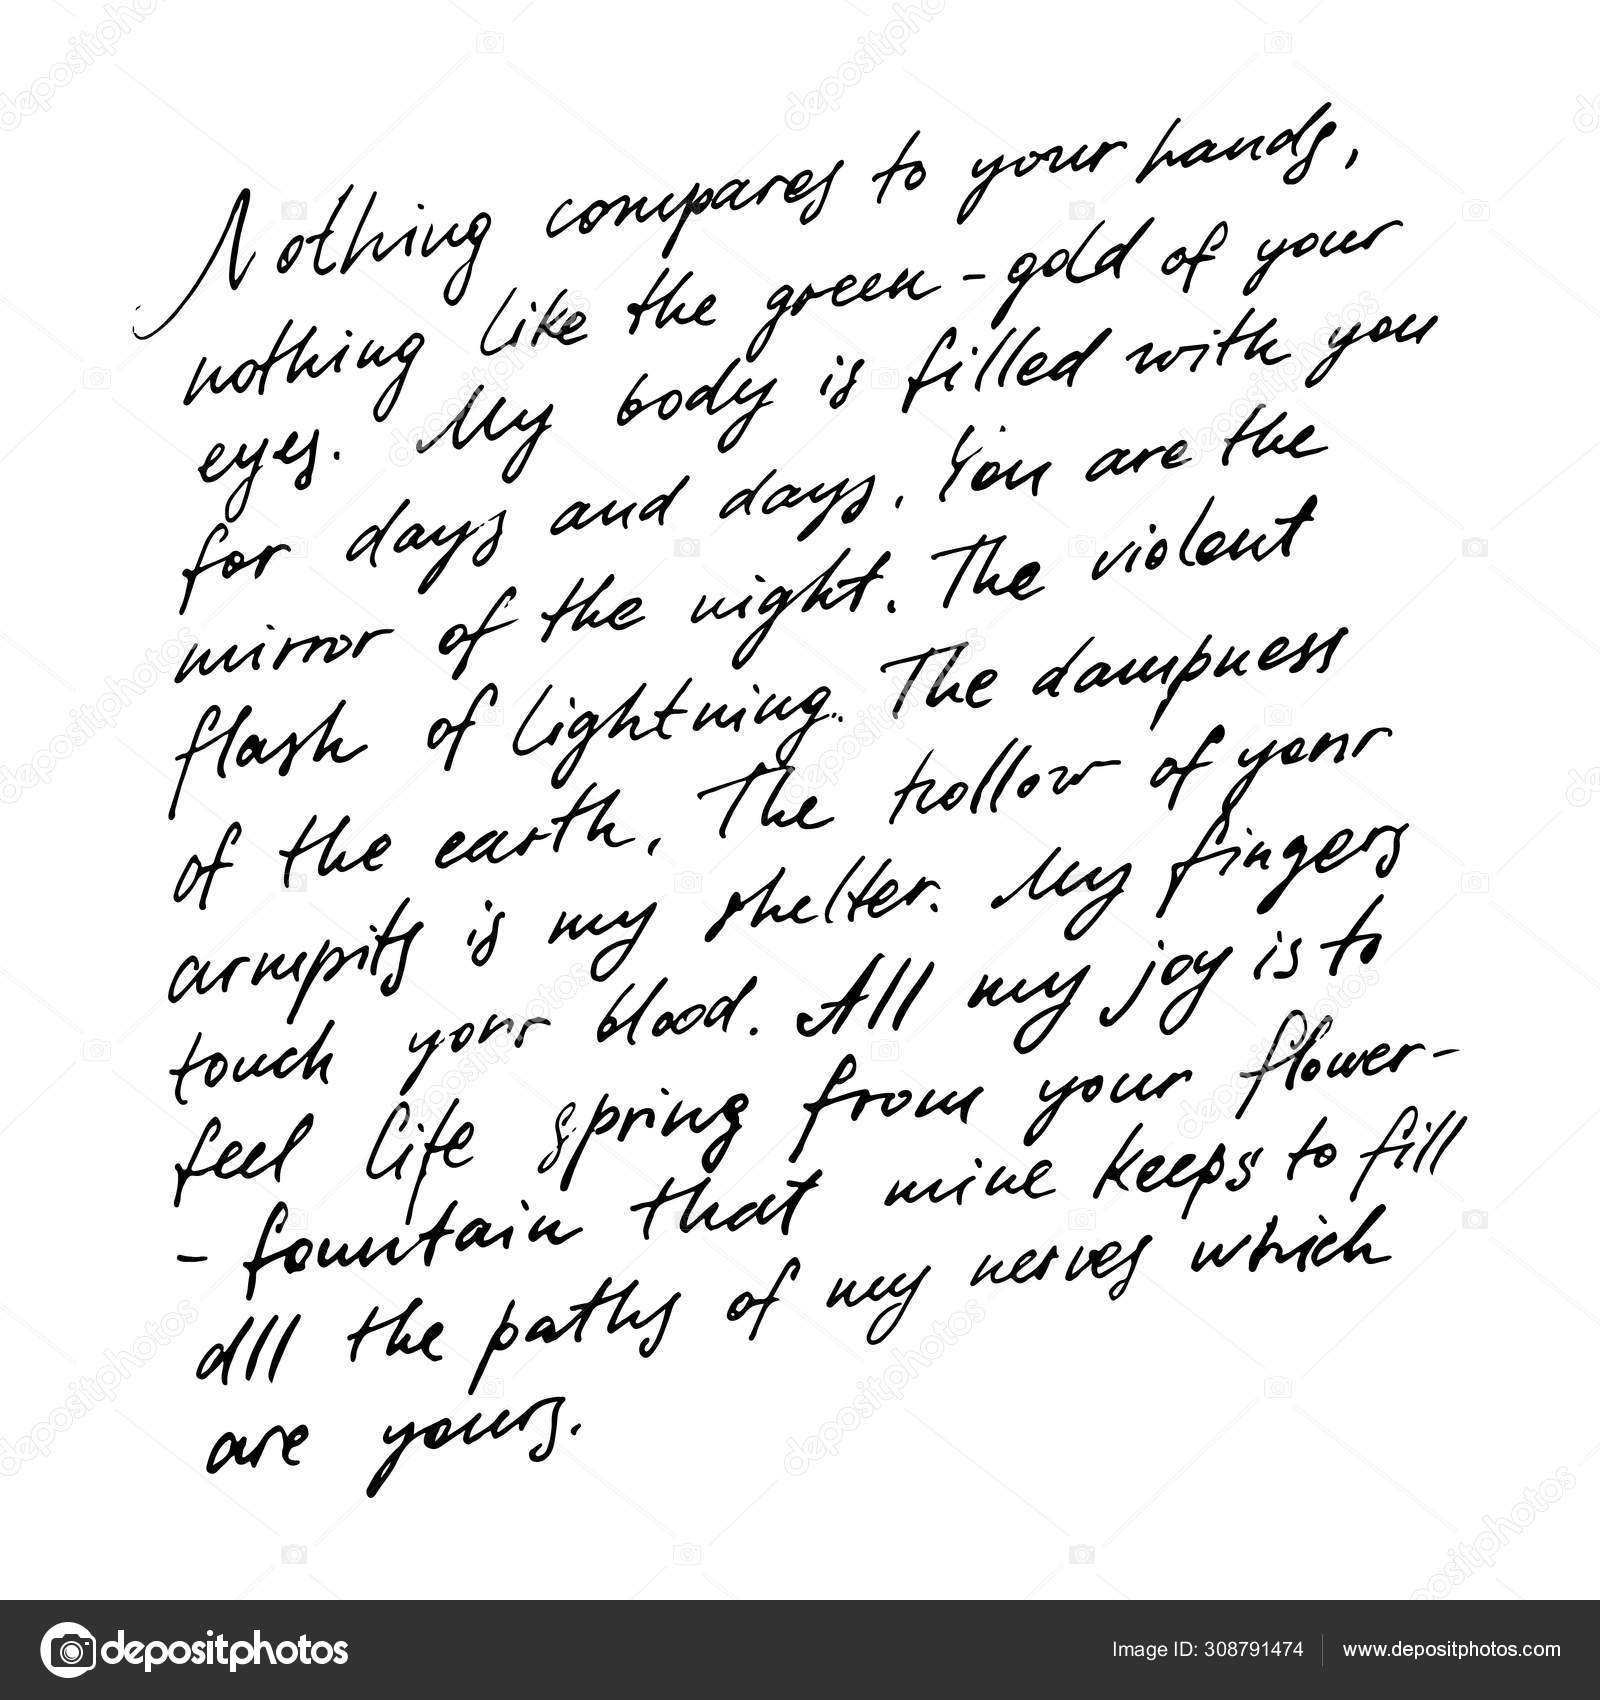 Nothing compares to your hands,
nothing like the green-gold of your
eyes. My body is filled with you
for days and days. You are the
mirror of the night. The violent
flash of lightning. The dampness
of the earth. The hollow of your
armpits is my shelter. My fingers
touch your blood. All my joy is to
feel life spring from your flower-
- fountain that mine keeps to fill
all the paths of my nerves which
are yours.
depositphotos
Image ID: 308791474
www.depositphotos.com